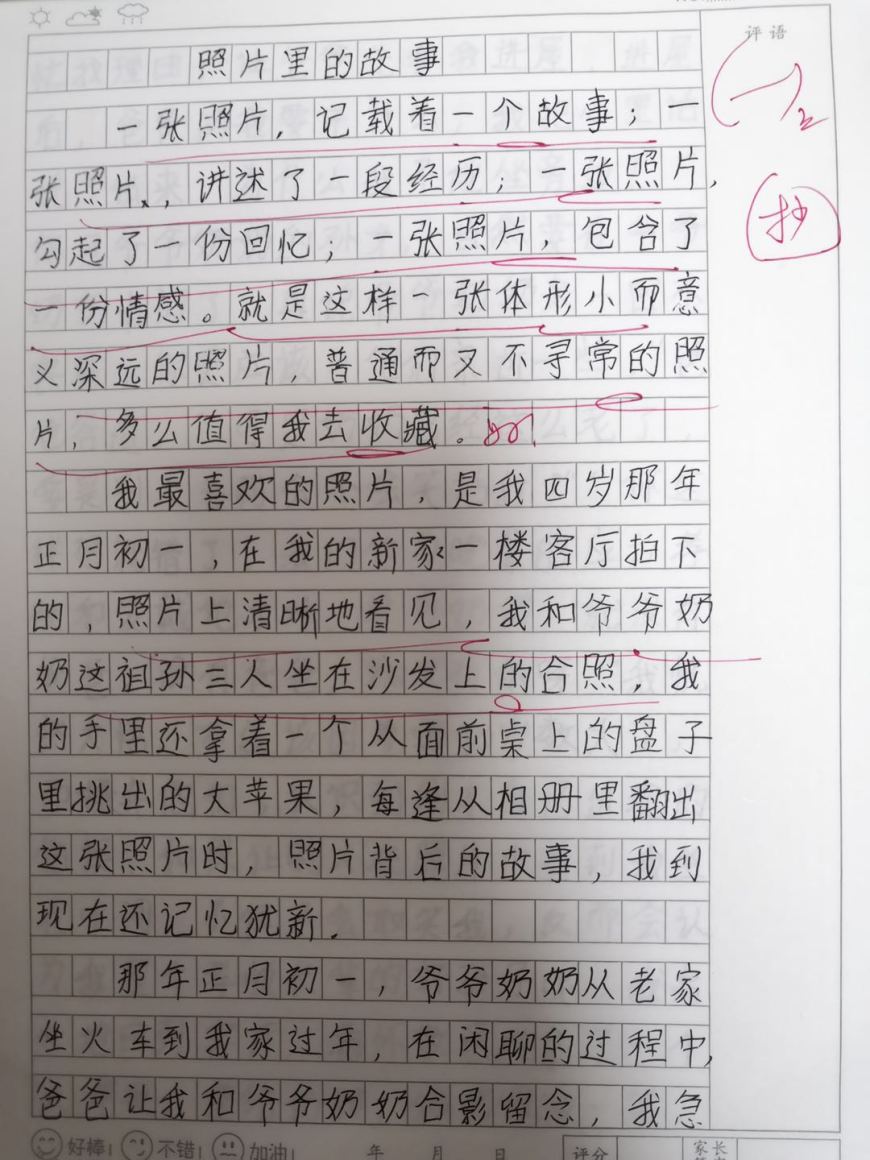 评语
照片里的故事
一张照片，记载着一个故事；一
张照片、，讲述了一段经历；一张照片，
勾起了一份回忆；一张照片，包含了
一份情感。就是这样一张体形小而意
义深远的照片，普通而又不寻常的照
片，多么值得我去收藏。
我最喜欢的照片，是我四岁那年
正月初一，在我的新家一楼客厅拍下
的，照片上清晰地看见，我和爷爷奶
奶这祖孙三人坐在沙发上的合照，我
的手里还拿着一个从面前桌上的盘子
里挑出的大苹果，每逢从相册里翻出
这张照片时，照片背后的故事，我到
现在还记忆犹新.
那年正月初一，爷爷奶奶从老家
坐火车到我家过年，在闲聊的过程中，
爸爸让我和爷爷奶奶合影留念，我急
抄
好棒！ 不错！ 加油！ 年 月 日 评分 家长